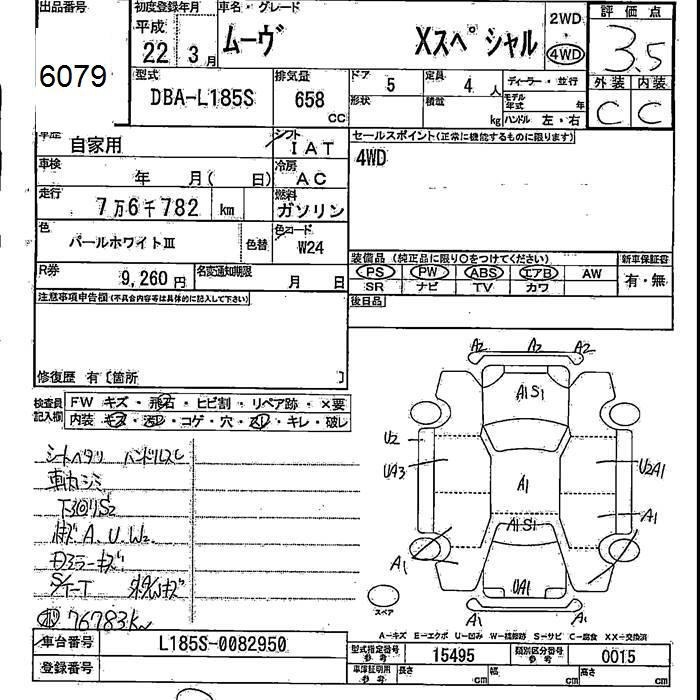 出品番号
6079
初度登録年月 車名・グレード
平成 22年 3月
ムーヴ Xスペシャル
2WD
4WD
評価点
3.5
外装 内装
C C
型式
DBA-L185S
排気量
658 CC
ドア 5
定員 4 人
形状 積載 kg
ディーラー・並行
モデル年式 年
ハンドル 左・右
車歴 自家用
シフト IAT
車検 年 月( 日)
冷房 AC
走行 7万6千782 km
燃料 ガソリン
色 パールホワイトⅢ 色替
色コード W24
R券 9,260円
名変通知期限 月 日
セールスポイント(正常に機能するものに限ります)
4WD
装備品 (純正品に限り○をつけてください)
PS PW ABS エアB AW
SR ナビ TV カワ
新車保証書
有・無
後日品
注意事項申告欄(不具合内容等は具体的に記入して下さい)
修復歴 有〔箇所 〕
検査員記入欄
FW キズ・飛石・ヒビ割・リペア跡・×要
内装・キズ・汚レ・コゲ・穴・スレ・キレ・破レ
シートヘタリ ハンドルスレ
車内シミ
下回りS2
A.U.W2
ドアミラーキズ
76783km
A2 A2 A2
A1S1
U2
UA3
A1
U2A1
A1S1
A1
A1
UA1
A1 A1
スペア
A-キズ E-エクボ U-凹み W-補修跡 S-サビ C-腐食 XX-交換済
車台番号 L185S-0082950
登録番号
型式指定番号 参考 15495
類別区分番号 参考 0015
車庫証明用 参考 長さ cm 幅 cm 高さ cm